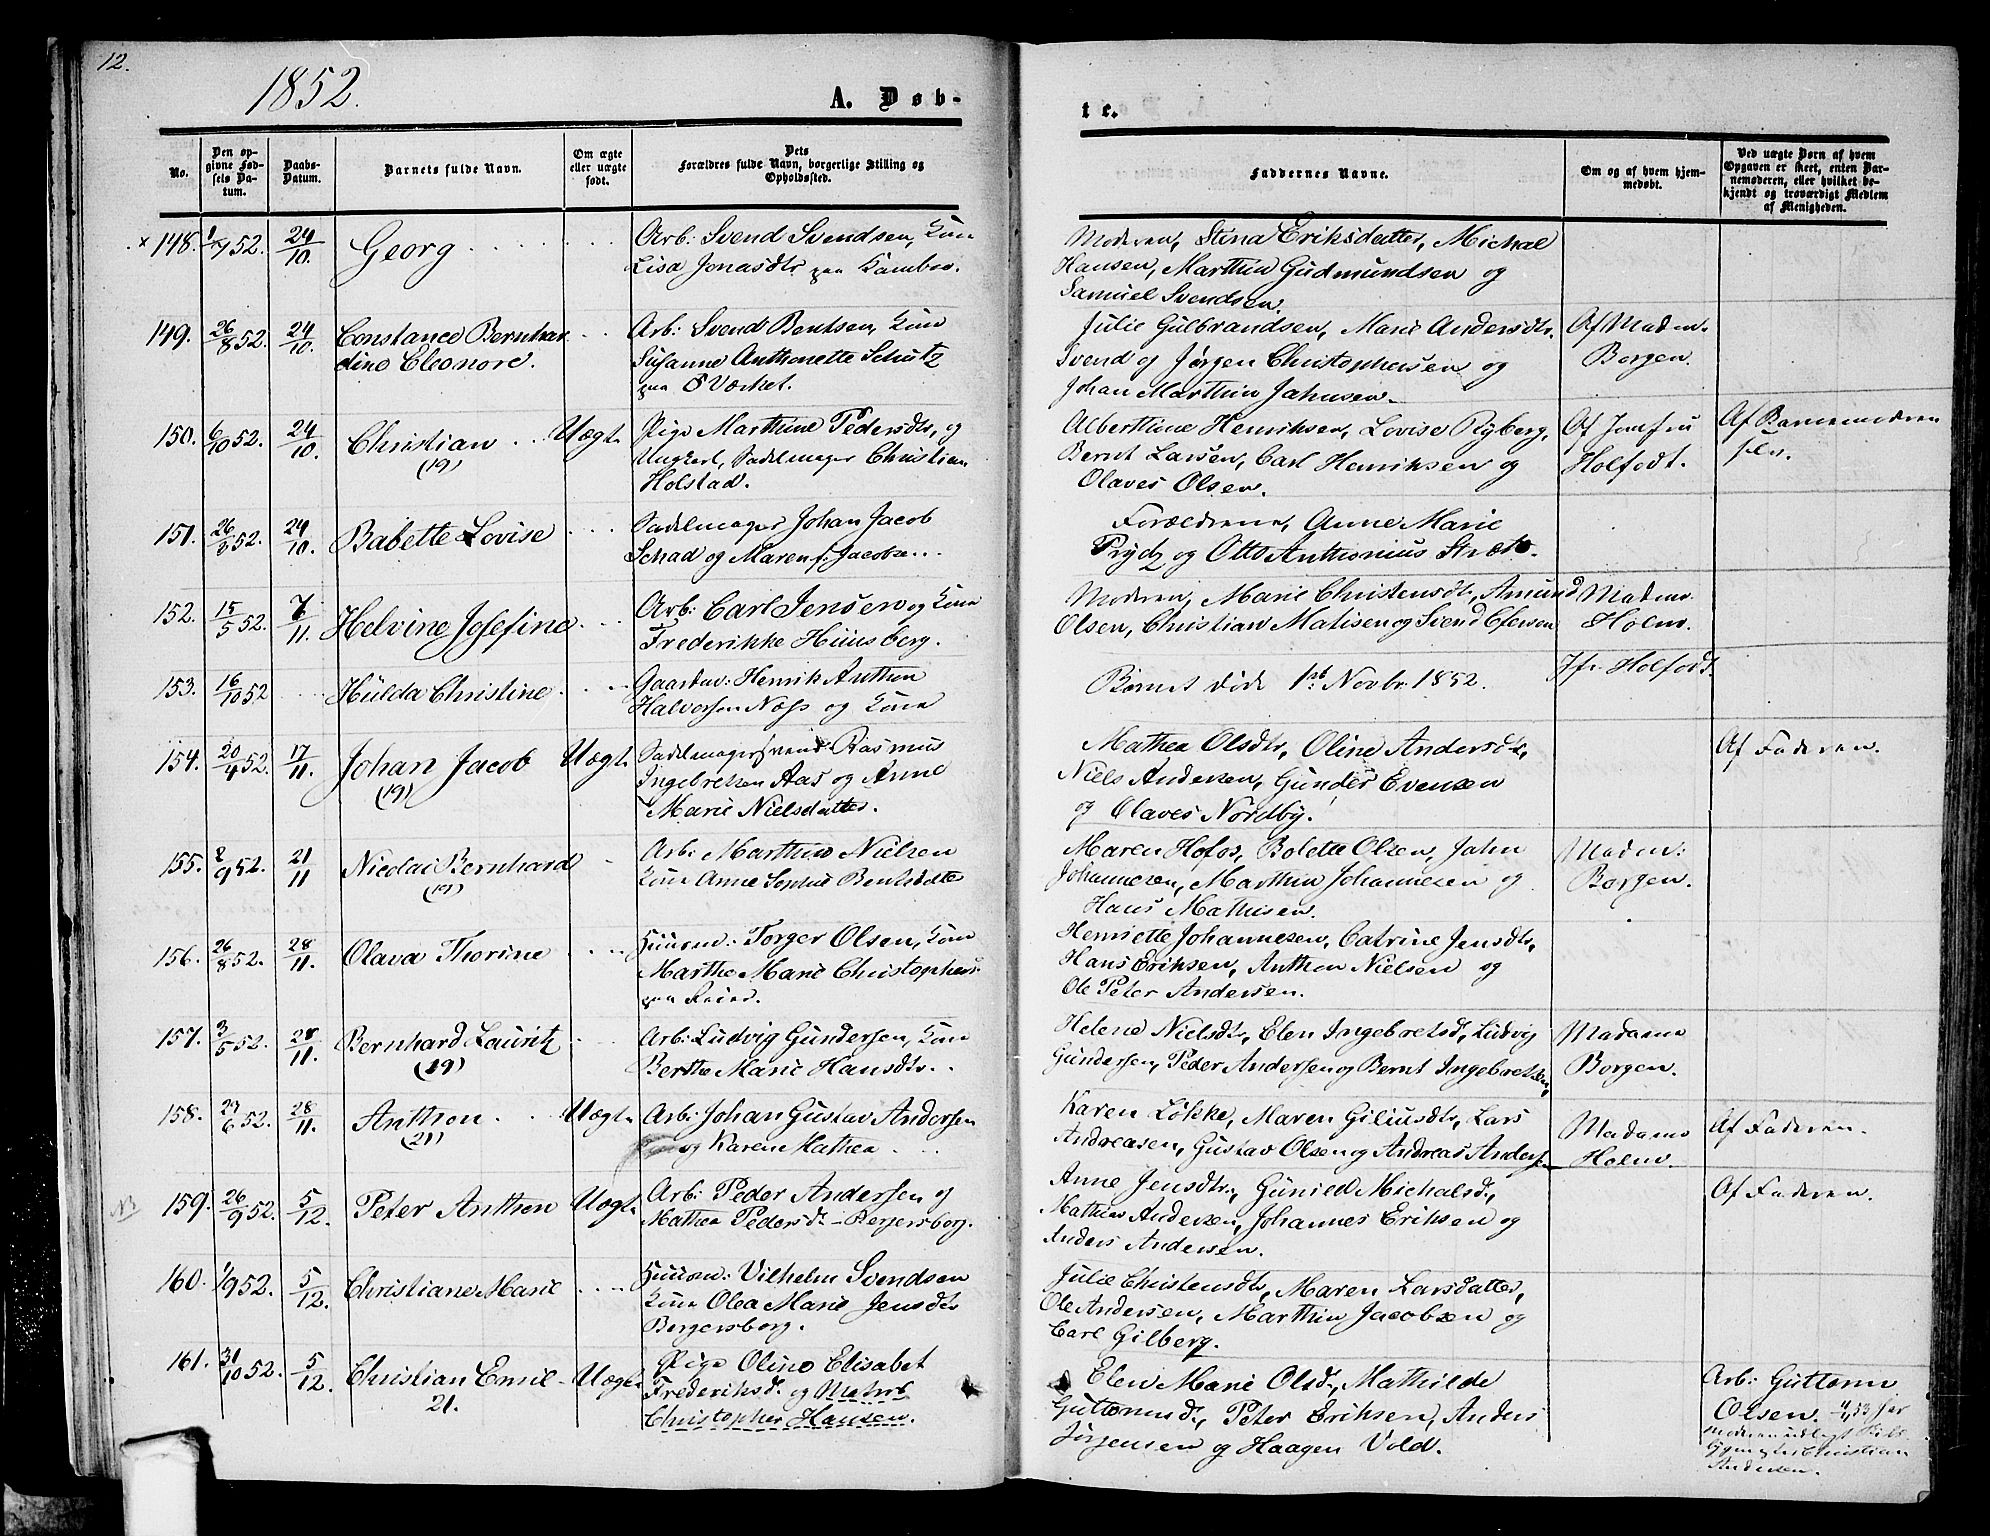 12.
1852.
A. Døb-
te.
No.
Den opgivne Fødsels Datum.
Daabs-Datum.
Barnets fulde Navn.
Om ægte eller uægte født.
Dets Forældres fulde Navn, borgerlige Stilling og Opholdssted.
Faddernes Navne.
Om og af hvem hjemmedøbt.
Ved uægte Børn af hvem Opgaven er skeet, enten Barnemoderen, eller hvilket bekjendt og troværdigt Medlem af Menigheden.
x 148. 1/7 52. 24/10. Georg
Arb: Svend Svendsen, Kone
Lisa Jonasdtr paa Kambo.
Moderen, Stina Eriksdatter, Michal
Hansen, Marthin Gudmundsen og
Samuel Svendsen.
149. 26/8 52. 24/10. Constance Bernhar
dine Eleonore.
Arb: Svend Bentsen, Kone
Susanne Anthonette Schutz
paa Værket.
Julie Gulbrandsen, Marie Andersdtr.
Svend og Jørgen Christophersen og
Johan Marthin Jahnsen.
Af Madm.
Borgen.
150. 6/10 52. 24/10. Christian
(19)
Uægt.
Pige Marthine Pedersdtr, og
Ungkarl, Sadelmager Christian
Holstad.
Alberthine Henriksen, Lovise Ryberg,
Bernt Larsen, Carl Henriksen og
Olaves Olsen.
Af Jomfru
Holfodt.
Af Barnemoderen
selv.
151. 26/8 52. 24/10. Babette Lovise
Sadelmager Johan Jacob
Schad og Maren f. Jacobsen.
Forældrene, Anne Marie
Prydz og Otto Anthonius
152. 15/5 52. 7/11. Helvine Josefine
Arb: Carl Jensen og Kone
Frederikke Hunsberg.
Moderen, Marie Christensdt, Amund
Olsen, Christian Matisen og Svend Efersen
Madm.
Holm.
153. 16/10 52 Hulda Christine
Gaardm: Henrik Anthon
Halvorsen Næss og Kone
Barnet døde 1st Novbr. 1852.
Jfr. Holfodt.
154. 20/4 52. 17/11. Johan Jacob
(19)
Uægt.
Sadelmagersvend Rasmus
Ingebretsen Aas og Anne
Marie Nielsdatter.
Mathea Olsdtr, Oline Andersdtr,
Niels Andersen, Gunder Evensen
og Olaves Nordby.
Af Faderen.
155. 2/9 52. 21/11 Nicolai Bernhard
(19)
Arb: Marthin Nielsen
Kone Anne Sophie Bentsdatter
Maren Hofos, Bolette Olsen, Jahn
Johannesen, Marthin Johannesen og
Hans Mathisen.
Madm:
Borgen.
156. 26/8 52. 28/11. Olava Thorine
Huusm: Torger Olsen, Kone
Marthe Marie Christophers.
paa Reier.
Henriette Johannesen, Catrine Jensdtr,
Hans Eriksen, Anthon Nielsen og
Ole Peter Andersen.
157. 3/5 52. 28/11. Bernhard Lauritz
(19)
Arb: Ludvig Gundersen, Kone
Berthe Marie Hansdtr.
Helene Nielsdtr, Elen Ingebretsd, Ludvig
Gundersen, Peder Andersen og Bernt Ingebretsen,
Madame
Borgen.
158. 27/6 52. 28/11. Anthon.
(21)
Uægt.
Arb: Johan Gustav Andersen
og Karen Mathea
Karen Løkke, Maren Giliusdtr, Lars
Andreasen, Gustav Olsen og Andreas Andersen
Madame
Holm.
Af Faderen.
NB 159. 26/9 52. 5/12. Peter Anthon
Uægt.
Arb: Peder Andersen og
Mathea Pedersd. - Bergersborg.
Anne Jensdtr, Gunild Michalsd,
Mathias Andersen, Johannes Eriksen og
Anders Andersen.
Af Faderen.
160. 1/9 52. 5/12. Christiane Marie
Huusm: Vilhelm Svendsen
Kone Olea Marie Jensdtr
Bergersborg.
Julie Christensdtr, Maren Larsdatter,
Ole Andersen, Marthin Jacobsen og
Carl Gilberg.
161. 31/10 52. 5/12. Christian Emil
21.
Uægt.
Pige Oline Elisabet
Frederiksd. og Matros
Christopher Hansen.
Elen Marie Olsd, Mathilde
Guttormsd, Peter Eriksen, Anders
Jørgensen og Haagen Vold.
Arb: Guttorm
Olsen. 4/1 53 har
moderen udlagt
Christian
Andersen.